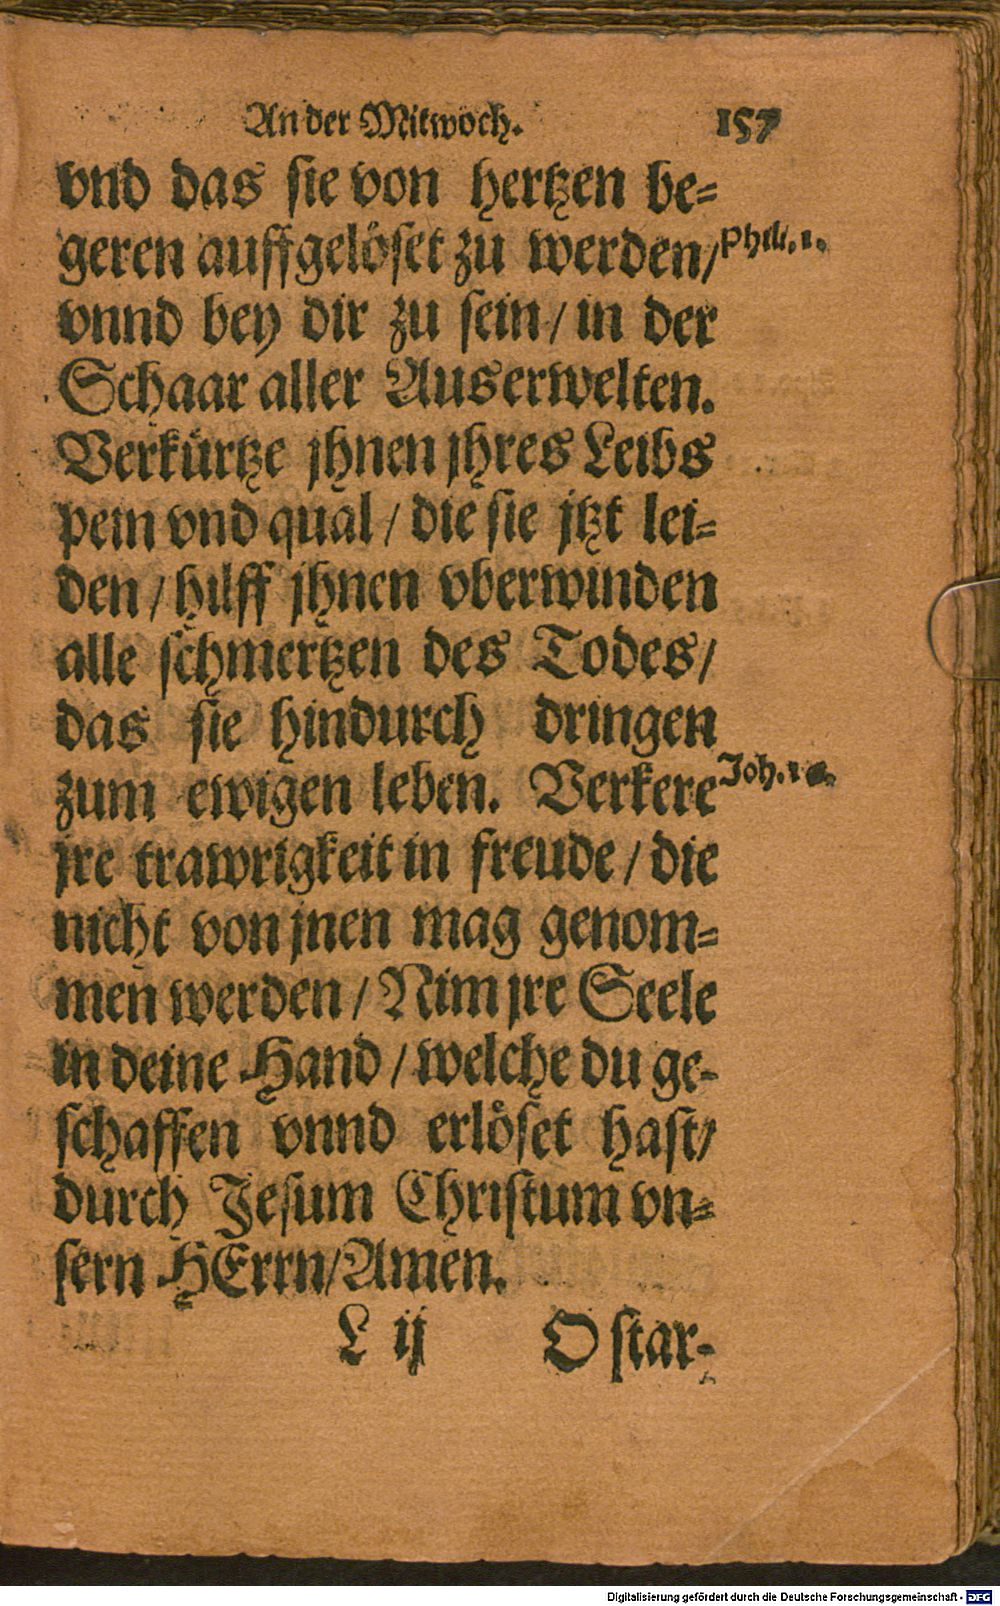 An der Mitwoch. 157
vnd das sie von hertzen be⸗
geren auffgelöset zu werden/ Phili. 1.
vnnd bey dir zu sein/ in der
Schaar aller Auserwelten.
Verkürtze jhnen jhres Leibs
pein vnd qual/ die sie jtzt lei⸗
den/ hilff jhnen vberwinden
alle schmertzen des Todes/
das sie hindurch dringen
zum ewigen leben. Verkere Joh.
jre trawrigkeit in freude/ die
nicht von jnen mag genom⸗
men werden/ Nim jre Seele
in deine Hand/ welche du ge⸗
schaffen vnnd erlöset hast/
durch Jesum Christum vn⸗
sern HErrn/ Amen.
L ij O star⸗
Digitalisierung gefördert durch die Deutsche Forschungsgemeinschaft - DFG